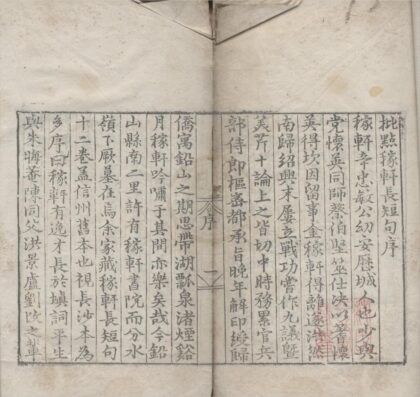 批點稼軒長短句序
稼軒辛忠敏公幼安歷城也少與
党懷英同師蔡伯堅筮仕決以蓍懷
英得坎因留事金稼軒得離遂浩然
南歸紹興末屢立戰功嘗作九議暨
美芹十論上之皆切中時務累官兵
部侍郎樞密都承旨晚年解印綬歸
序 二
僑寓鉛山之期思帶湖瓢泉渚煙谿
月稼軒吟嘯于其間亦樂矣哉今鉛
山縣南二里許有稼軒書院而分水
嶺下厥墓在焉余家藏稼軒長短句
十二卷蓋信州舊本也視長沙本為
多序曰稼軒有逸才長於填詞平生
與朱晦菴陳同父洪景盧劉改之輩